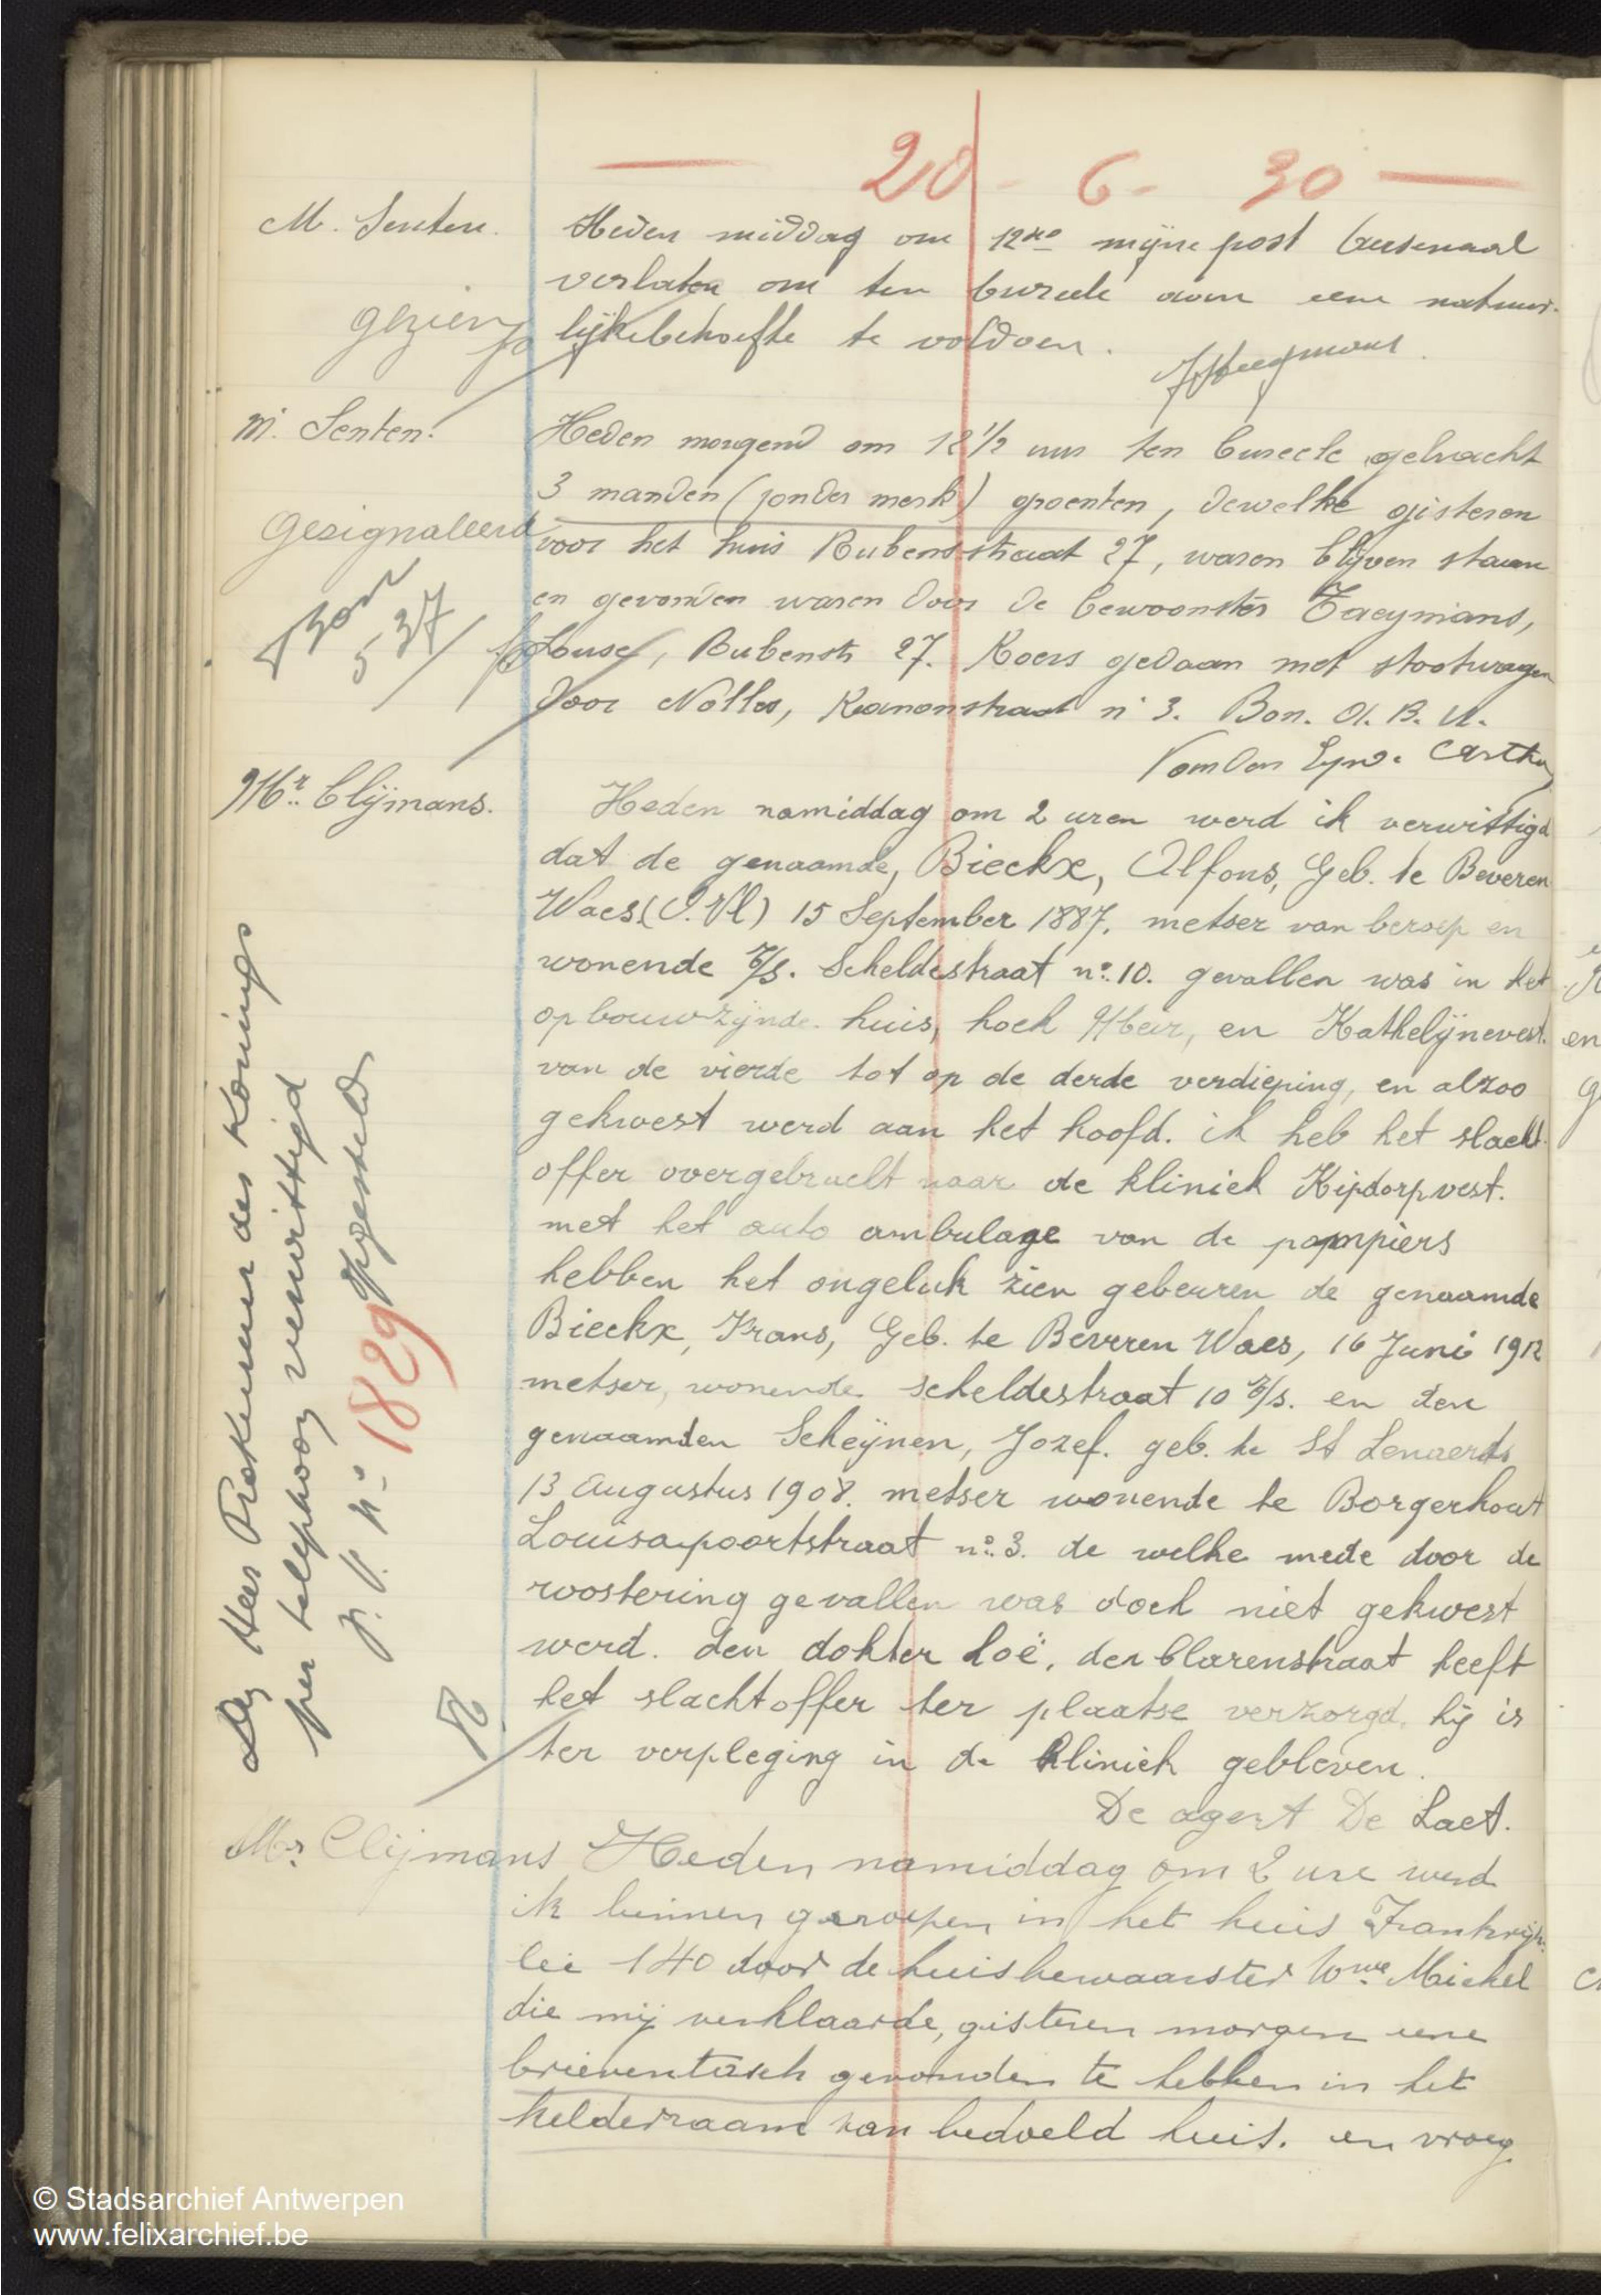 20 - 6 - 30
M. Senten.
Heden middag om 12 mijne post Arsenaal
verlaten om ten bureele aan eene natuur-
lijkebehoefte te voldoen.
gezien
M. Senten.
Heden morgend om 12 1/2 uur ten bureele gebracht
3 manden (zonder merk) groenten, dewelke gisteren
gesignaleerd
voor het huis Rubensstraat 27, waren blijven staan
en gevonden waren door de bewoonster Taeymans,
Louise, Rubenstr 27. Koers gedaan met stootwagen
537
door Nolles, Kanonstraat n° 3. Bon. A. B. U.
Van den Eynde
Mr. Clijmans.
Heden namiddag om 2 uren werd ik verwittigd
dat de genaamde, Bieckx, Alfons, Geb. te Beveren
Waes (O. Vl) 15 September 1887, metser van beroep en
wonende T/S. Scheldestraat n°. 10. gevallen was in het
opbouwzijnde huis, hoek Meir, en Kathelijnevest.
van de vierde tot op de derde verdieping, en alzoo
gekwest werd aan het hoofd. ik heb het slacht-
offer overgebracht naar de kliniek Kipdorpvest.
met het auto ambulage van de pompiers
hebben het ongeluk zien gebeuren de genaamde
Bieckx, Frans, Geb. te Beveren Waes, 16 Juni 1912
metser, wonende scheldestraat 10 T/S. en den
genaamden Scheijnen, Jozef. geb. te St Lenaerts
13 Augustus 1908. metser wonende te Borgerhout
Louisapoortstraat n°. 3. de welke mede door de
roostering gevallen was doch niet gekwest
werd. den dokter Loë, der Clarenstraat heeft
het slachtoffer ter plaatse verzorgd, hij is
ter verpleging in de kliniek gebleven.
De agent De Laet.
Den Heer Prokureur des Konings
per telephoon verwittigd
p. V. n° 1829 opgesteld
Mr. Clijmans
Heden namiddag om 2 ure werd
ik binnen geroepen in het huis Frankrijk-
lei 140 door de huisbewaarster Wwe Michel
die mij verklaarde, gisteren morgen eene
brieventasch gevonden te hebben in het
kelderraam van bedoeld huis. en vroeg
© Stadsarchief Antwerpen
www.felixarchief.be